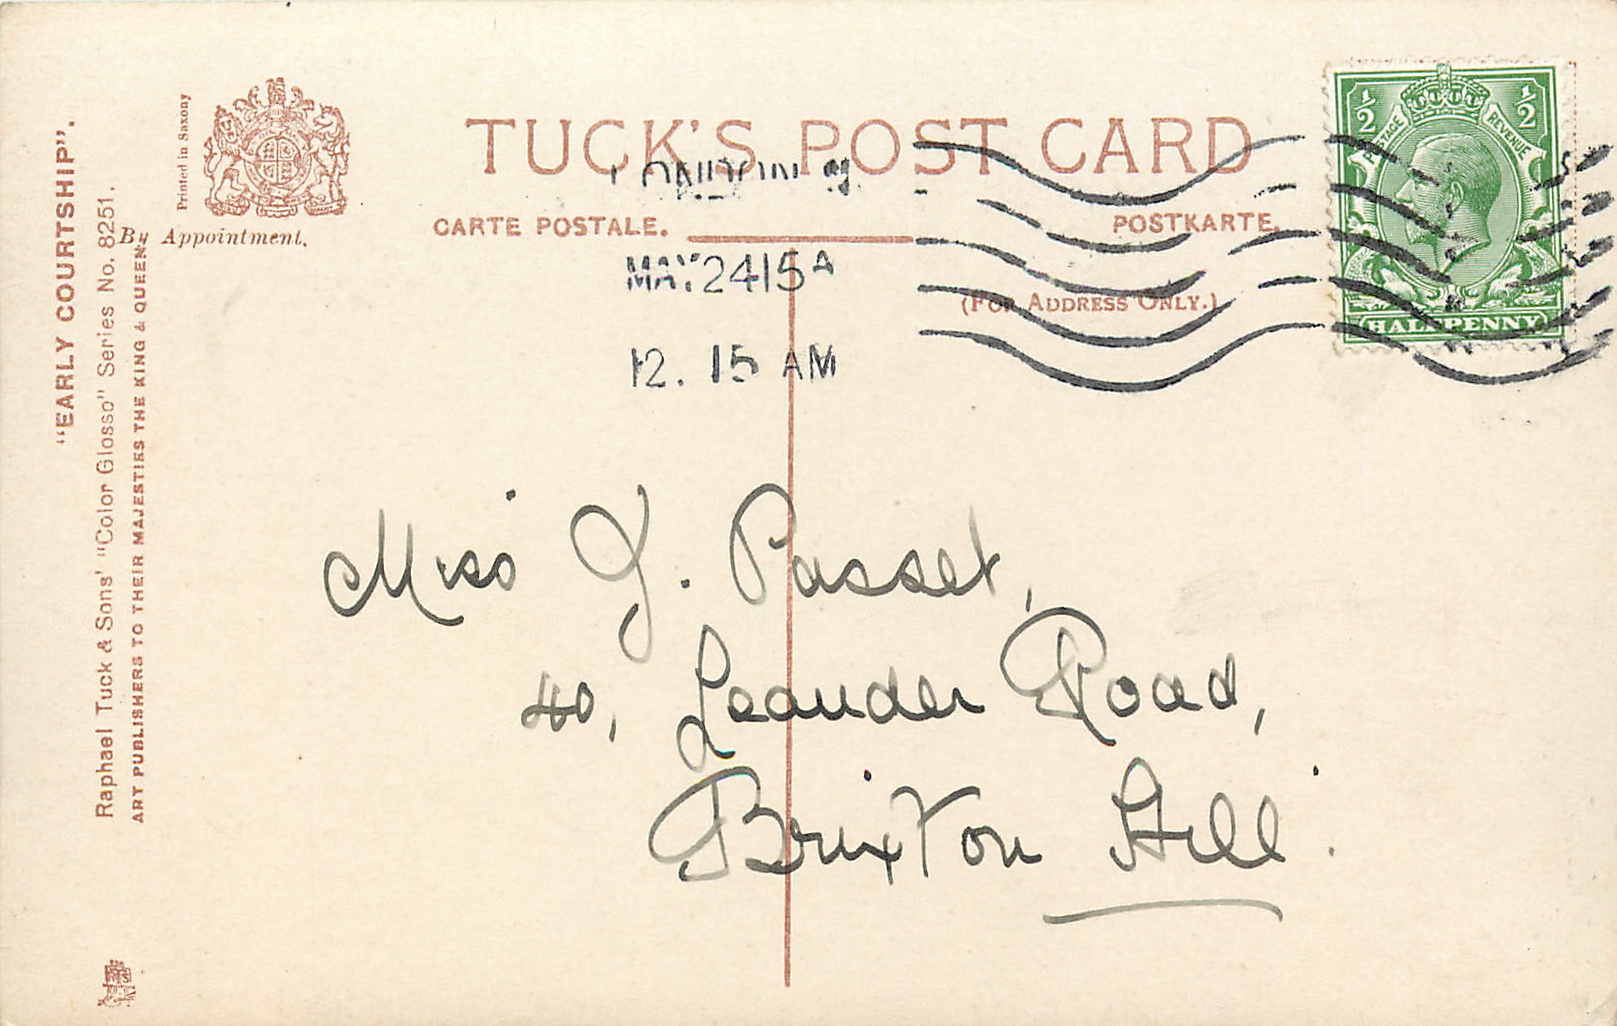 "EARLY COURTSHIP".
Raphael Tuck & Sons' "Color Glosso" Series No. 8251.
ART PUBLISHERS TO THEIR MAJESTIES THE KING & QUEEN.
Printed in Saxony
By Appointment.
TUCK'S POST CARD
CARTE POSTALE.
POSTKARTE.
(FOR ADDRESS ONLY.)
MAY 24 15 A
12. 15 AM
1/2 1/2
POSTAGE REVENUE
HALFPENNY
Miss J. Passet,
40, Leander Road,
Brixton Hill.